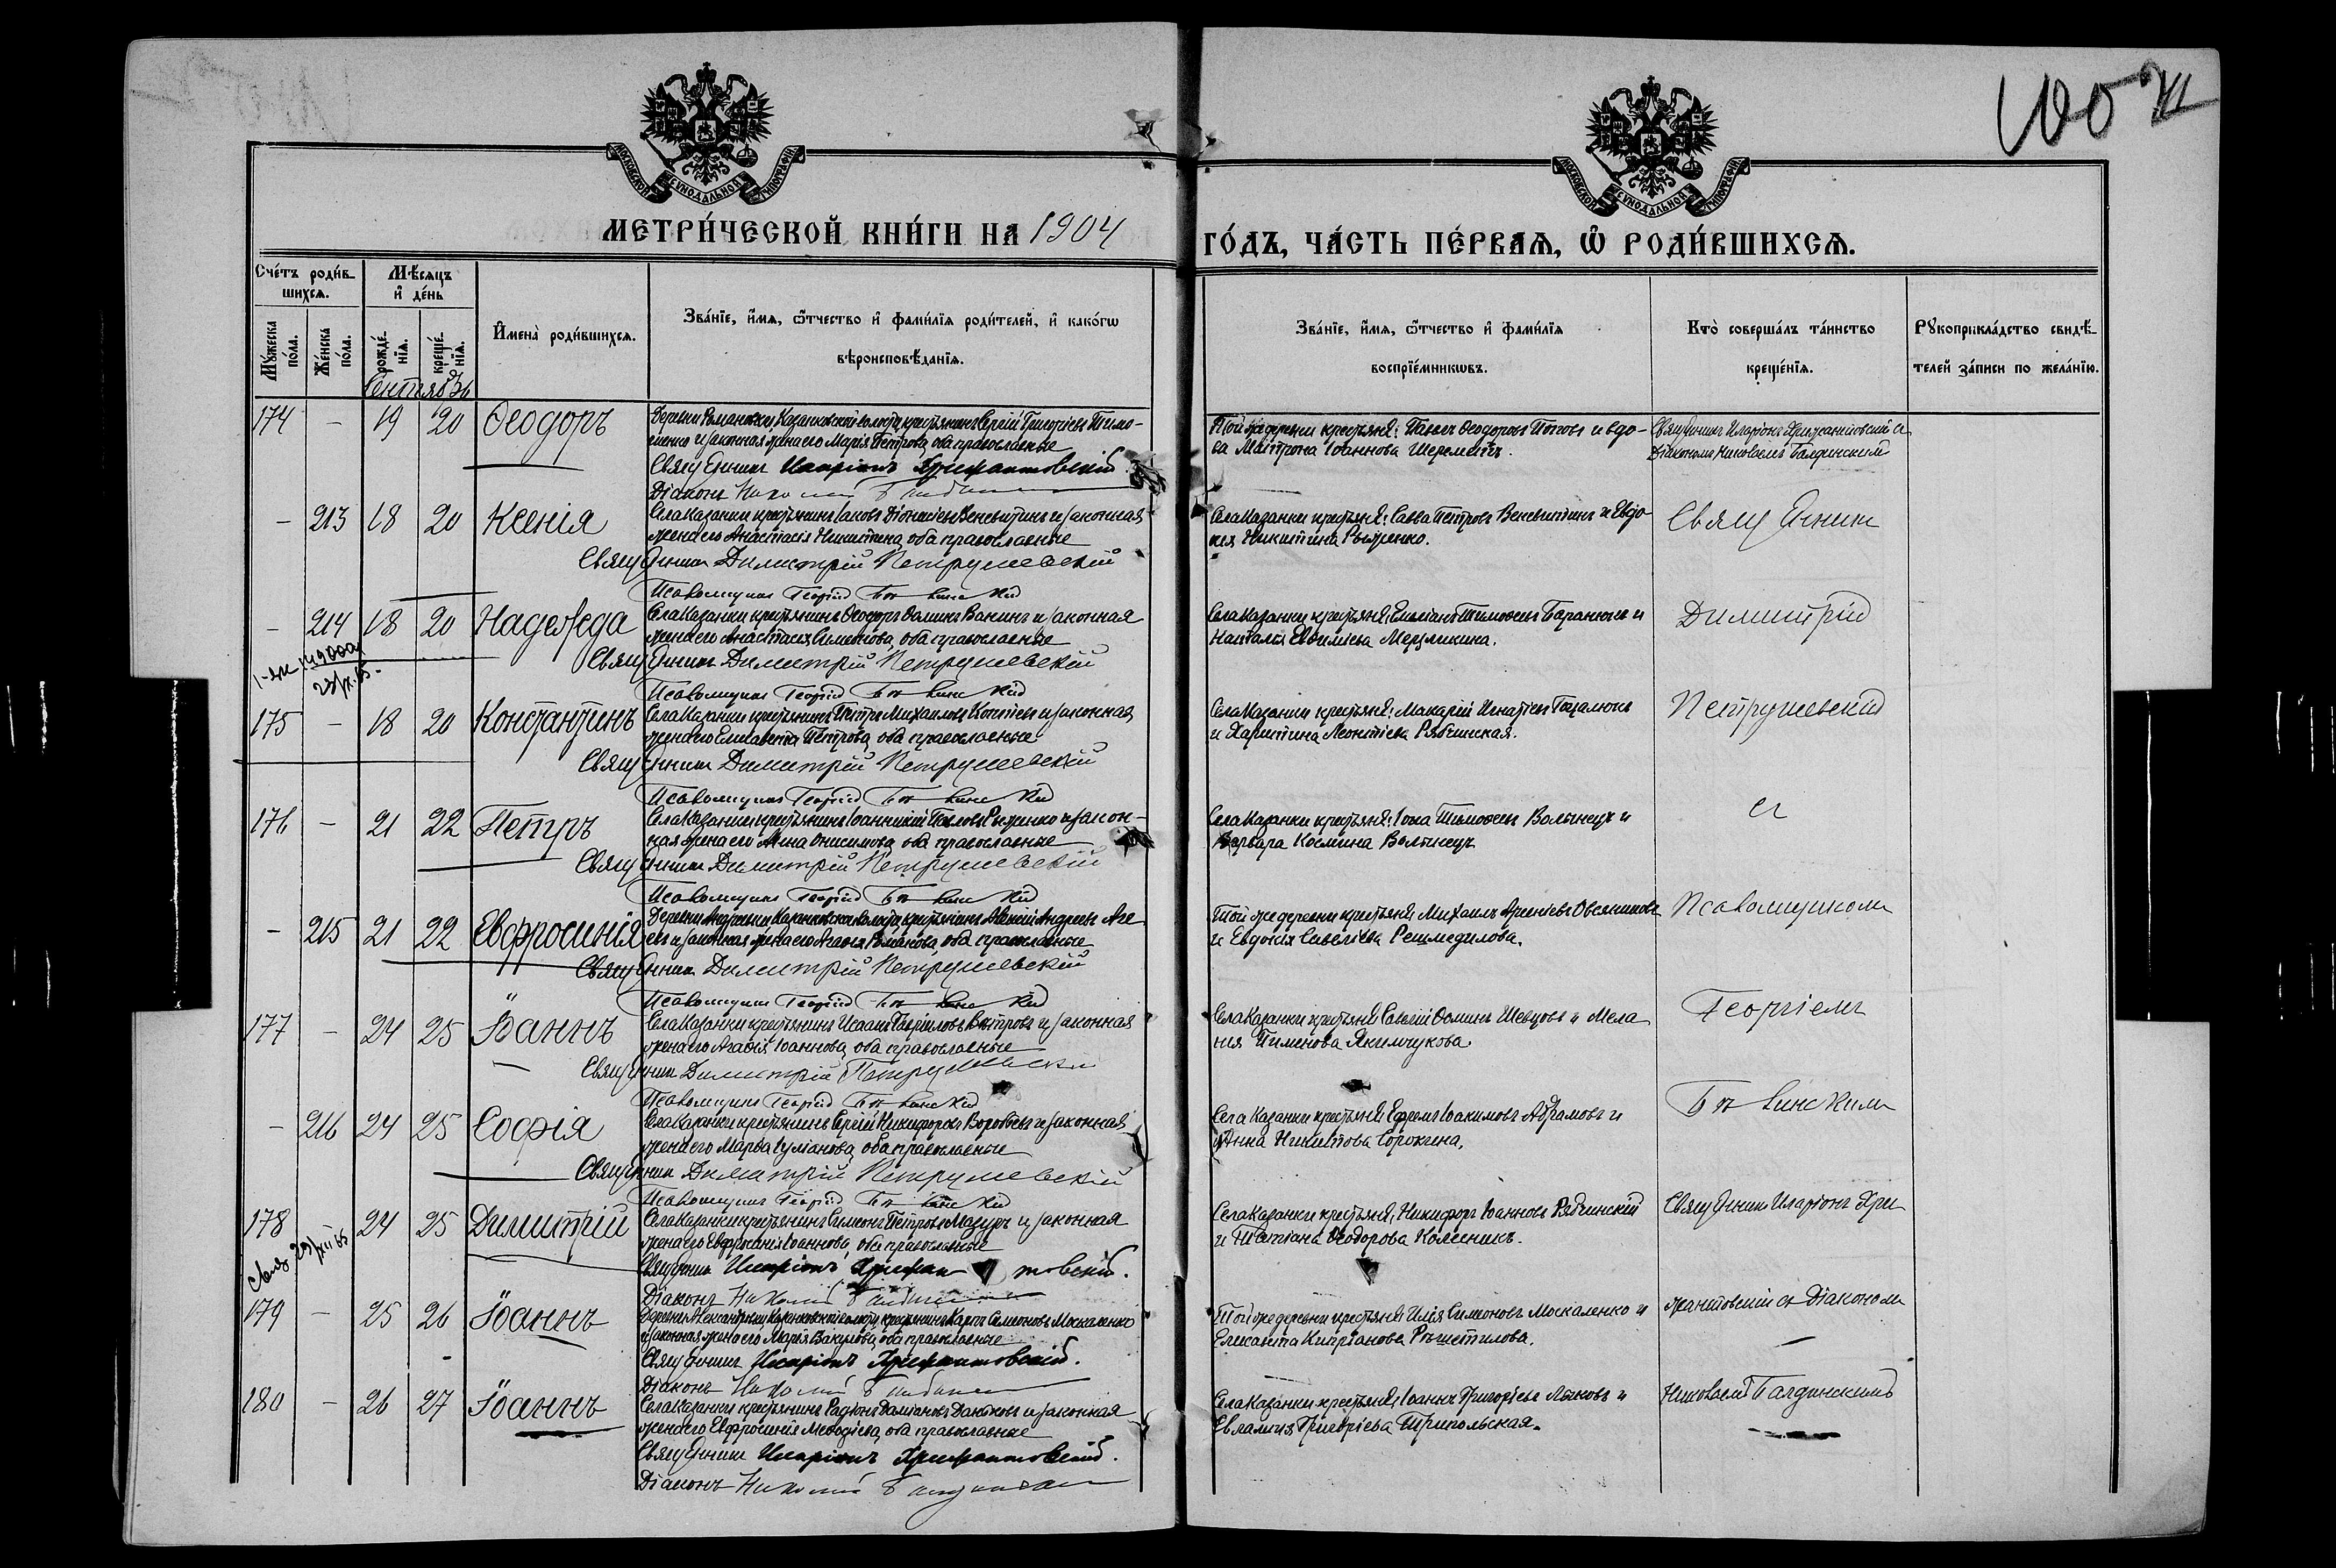 100
МОСКОВСКОЙ СѴНОДАЛЬНОЙ ТИПОГРАФІИ
МОСКОВСКОЙ СѴНОДАЛЬНОЙ ТИПОГРАФІИ
МЕТРИ́ЧЕСКОЙ КНИ́ГИ НА 1904
ГО́ДЪ, ЧА́СТЬ ПЕ́РВАѦ, Ѽ РОДИ́ВШИХСѦ.
Сче́тъ роди́в-
шихсѧ.
Мѣсѧцъ
и҆ де́нь
Мꙋжеска по́ла.
Же́нска по́ла.
рожде́-
нїѧ.
креще́-
нїѧ.
И҆мена̀ роди́вшихсѧ.
Зва́нїе, и҆́мѧ, ѻ҆́тчество и҆ фами́лїѧ роди́телей, и҆ како́гѡ
вѣроисповѣ́данїѧ.
Зва́нїе, и҆́мѧ, ѻ҆́тчество и҆ фами́лїѧ
воспрїе́мникѡвъ.
Кто̀ соверша́лъ та́инство
креще́нїѧ.
Рꙋкоприкла́дство свидѣ́-
телей за́писи по жела́нїю.
Сентябрь
174 – 19 20 Ѳеодоръ
Деревни Романовки, Казанковской волости, крестьянинъ Сергій Григоріевъ Тимо-
шенко и законная жена его Марія Петрова, оба православные
Священникъ Иларіонъ Хрисанѳовскій
Діаконъ Николай
Той же деревни крестьяне: Павелъ Ѳеодоровъ Поповъ и вдо-
ва Матрона Іоаннова Шереметъ.
Священникъ Иларіонъ съ
Діакономъ Николаемъ Балдинскимъ
– 213 18 20 Ксенія
Села Казанки крестьянинъ Іаковъ Діонисіевъ Веневитинъ и законная
жена его Анастасія Никитина, оба православные
Священникъ Димитрій Петрушевскій
Псаломщикъ Георгій
Села Казанки крестьяне: Савва Петровъ Веневитинъ и Евдо-
кія Никитина Рыженко.
Священникъ
– 214 18 20 Надежда
Села Казанки крестьянинъ Ѳеодоръ Ѳоминъ Ванинъ и законная
жена его Анастасія Симеонова, оба православные
Священникъ Димитрій Петрушевскій
Псаломщикъ Георгій
Села Казанки крестьяне: Емельянъ Тимоѳеевъ Баранюкъ и
Наталія Евѳиміева Мерзликина.
Димитрій
175 – 18 20 Константинъ
Села Казанки крестьянинъ Петръ Михаиловъ и законная
жена его Елисавета Петрова, оба православные
Священникъ Димитрій Петрушевскій
Псаломщикъ Георгій
Села Казанки крестьяне: Макарій Игнатіевъ
и Харитина Леонтіева Рябчинская.
Петрушевскій
176 – 21 22 Петръ
Села Казанки крестьянинъ Іоанникій Павловъ Рыженко и закон-
ная жена его Анна Онисимова, оба православные
Священникъ Димитрій Петрушевскій
Псаломщикъ Георгій
Села Казанки крестьяне: Іона Тимоѳеевъ Волынецъ и
Варвара Космина Волынецъ
съ
– 215 21 22 Евфросинія
Деревни Андреевки, Казанковской волости, крестьянинъ Алексій Андреевъ
и законная жена его Агаѳія Романова, оба православные
Священникъ Димитрій Петрушевскій
Псаломщикъ Георгій
Той же деревни крестьяне Михаилъ Арсеніевъ Овсянниковъ
и Евдокія Савеліева
Псаломщикомъ
177 – 24 25 Іоаннъ
Села Казанки крестьянинъ Исаакъ Гавріиловъ и законная
жена его Агаѳія Іоаннова, оба православные
Священникъ Димитрій Петрушевскій
Псаломщикъ Георгій
Села Казанки крестьяне Савелій Ѳоминъ Шевцовъ и Мела-
нія Пименова Якимчукова.
Георгіемъ
– 216 24 25 Софія
Села Казанки крестьянинъ Сергій Никифоровъ Воробьевъ и законная
жена его Марѳа, оба православные
Священникъ Димитрій Петрушевскій
Псаломщикъ Георгій
Села Казанки крестьяне Ефремъ Іоакимовъ Абрамовъ и
Анна Никитова Сорокина.
178 24 25 Димитрій
Села Казанки крестьянинъ Симеонъ Петровъ Мазуръ и законная
жена его Евфросинія Іоаннова, оба православные
Священникъ Иларіонъ
Діаконъ Николай
Села Казанки крестьяне, Никифоръ Іоанновъ Рябчинскій
и Татіана Ѳеодорова Колесникъ.
Священникъ Иларіонъ Хри-
179 – 25 26 Іоаннъ
Деревни Александровки, Казанковской волости, крестьянинъ Карпъ Симеоновъ Москаленко
и законная жена его Марія Вакулова, оба православные
Священникъ Иларіонъ
Діаконъ Николай
Той же деревни крестьяне Илія Симеоновъ Москаленко и
Елисавета Кипріанова Рѣшетилова.
съ Діакономъ
180 – 26 27 Іоаннъ
Села Казанки крестьянинъ Родіонъ Даміановъ Даньковъ и законная
жена его Евфросинія Меѳодіева, оба православные
Священникъ Иларіонъ
Діаконъ Николай
Села Казанки крестьяне, Іоаннъ Григоріевъ Лыковъ и
Евлампія Григоріева Трипольская.
Николаемъ Балдинскимъ